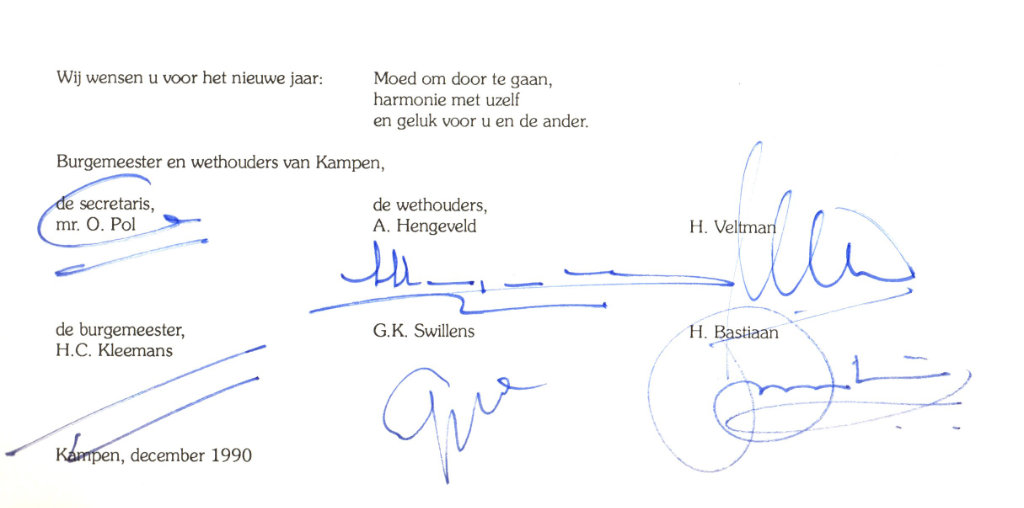 Wij wensen u voor het nieuwe jaar:
Moed om door te gaan,
harmonie met uzelf
en geluk voor u en de ander.
Burgemeester en wethouders van Kampen,
de secretaris,
mr. O. Pol
de wethouders,
A. Hengeveld
H. Veltman
de burgemeester,
H.C. Kleemans
G.K. Swillens
H. Bastiaan
Kampen, december 1990